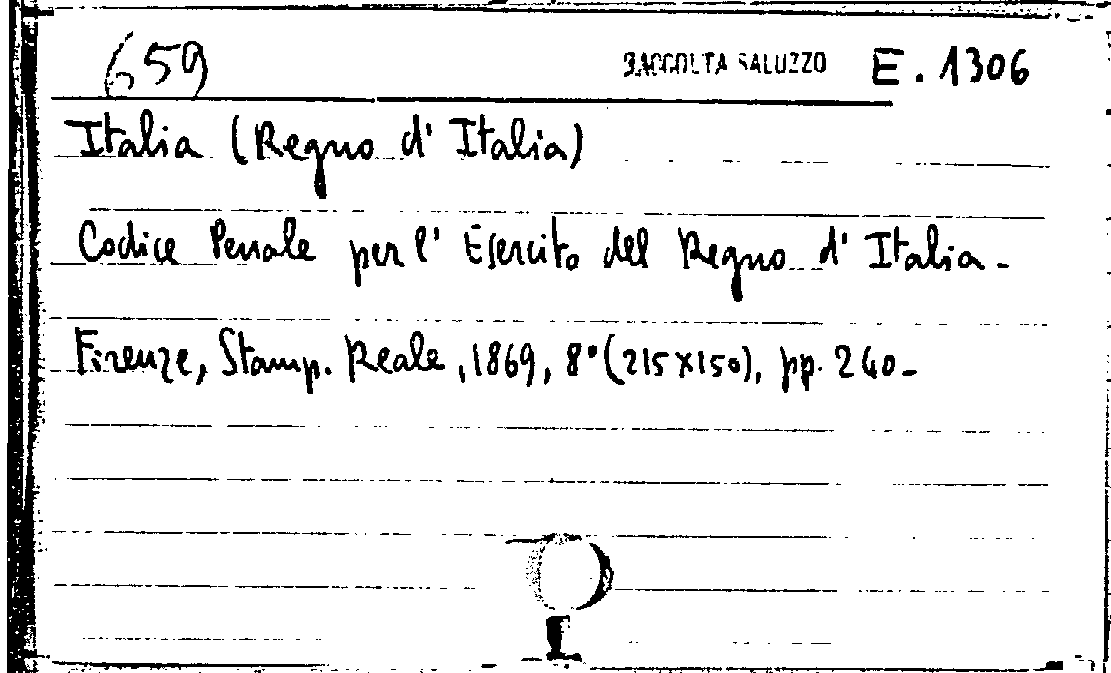 659 RACCOLTA SALUZZO E. 1306
Italia (Regno d' Italia)
Codice Penale per l' Esercito del Regno d' Italia -
Firenze, Stamp. Reale, 1869, 8° (215x150), pp. 240 -